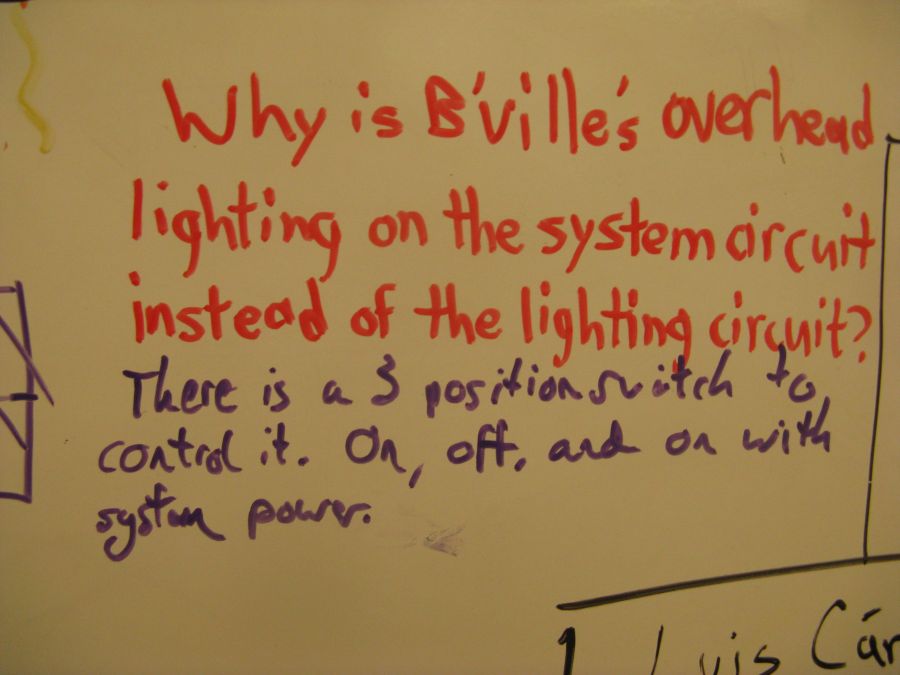 Why is B'ville's overhead
lighting on the system circuit
instead of the lighting circuit?
There is a 3 position switch to
control it. On, off, and on with
system power.
1 Luis Cár